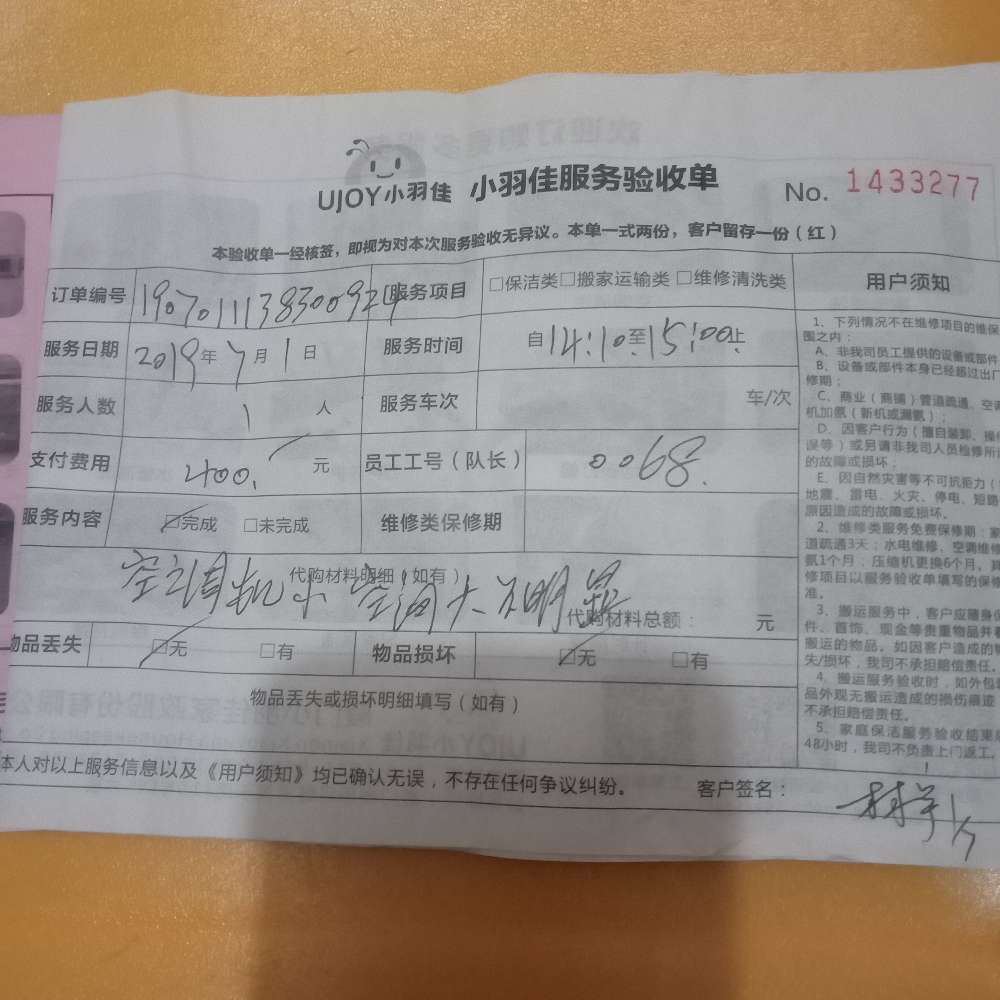 UJOY小羽佳 小羽佳服务验收单 No. 1433277
本验收单一经核签，即视为对本次服务验收无异议。本单一式两份，客户留存一份（红）
订单编号 服务项目 □保洁类□搬家运输类 □维修清洗类
服务日期 2019年7月1日 服务时间 自14:10至15:00止
服务人数 1 人 服务车次 车/次
支付费用 400. 元 员工工号（队长） 0068.
服务内容 ☑完成 □未完成 维修类保修期
代购材料明细（如有）
空调机
代购材料总额： 元
物品丢失 ☑无 □有 物品损坏 ☑无 □有
物品丢失或损坏明细填写（如有）
本人对以上服务信息以及《用户须知》均已确认无误，不存在任何争议纠纷。 客户签名：
用户须知
1、下列情况不在维修项目的维保
围之内：
A、非我司员工提供的设备或部件
B、设备或部件本身已经超过出厂
修期；
C、商业（商铺）管道疏通、空调
机加氨（新机或漏氨）；
D、因客户行为（擅自装卸、操作
误等）或另请非我司人员检修所
的故障或损坏；
E、因自然灾害等不可抗拒力（
地震、雷电、火灾、停电、短路
原因造成的故障或损坏。
2、维修类服务免费保修期：
道疏通3天；水电维修、空调维修
氨1个月；压缩机更换6个月，
修项目以服务验收单填写的保修
准。
3、搬运服务中，客户应随身
件、首饰、现金等贵重物品并
搬运的物品。如因客户造成的
失/损坏，我司不承担赔偿责任。
4、搬运服务验收时，如外包
品外观无搬运造成的损伤痕迹
不承担赔偿责任。
5、家庭保洁服务验收结束
48小时，我司不负责上门返工。